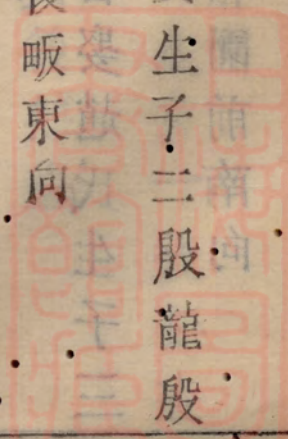 生子二殷龍殷
畈東向